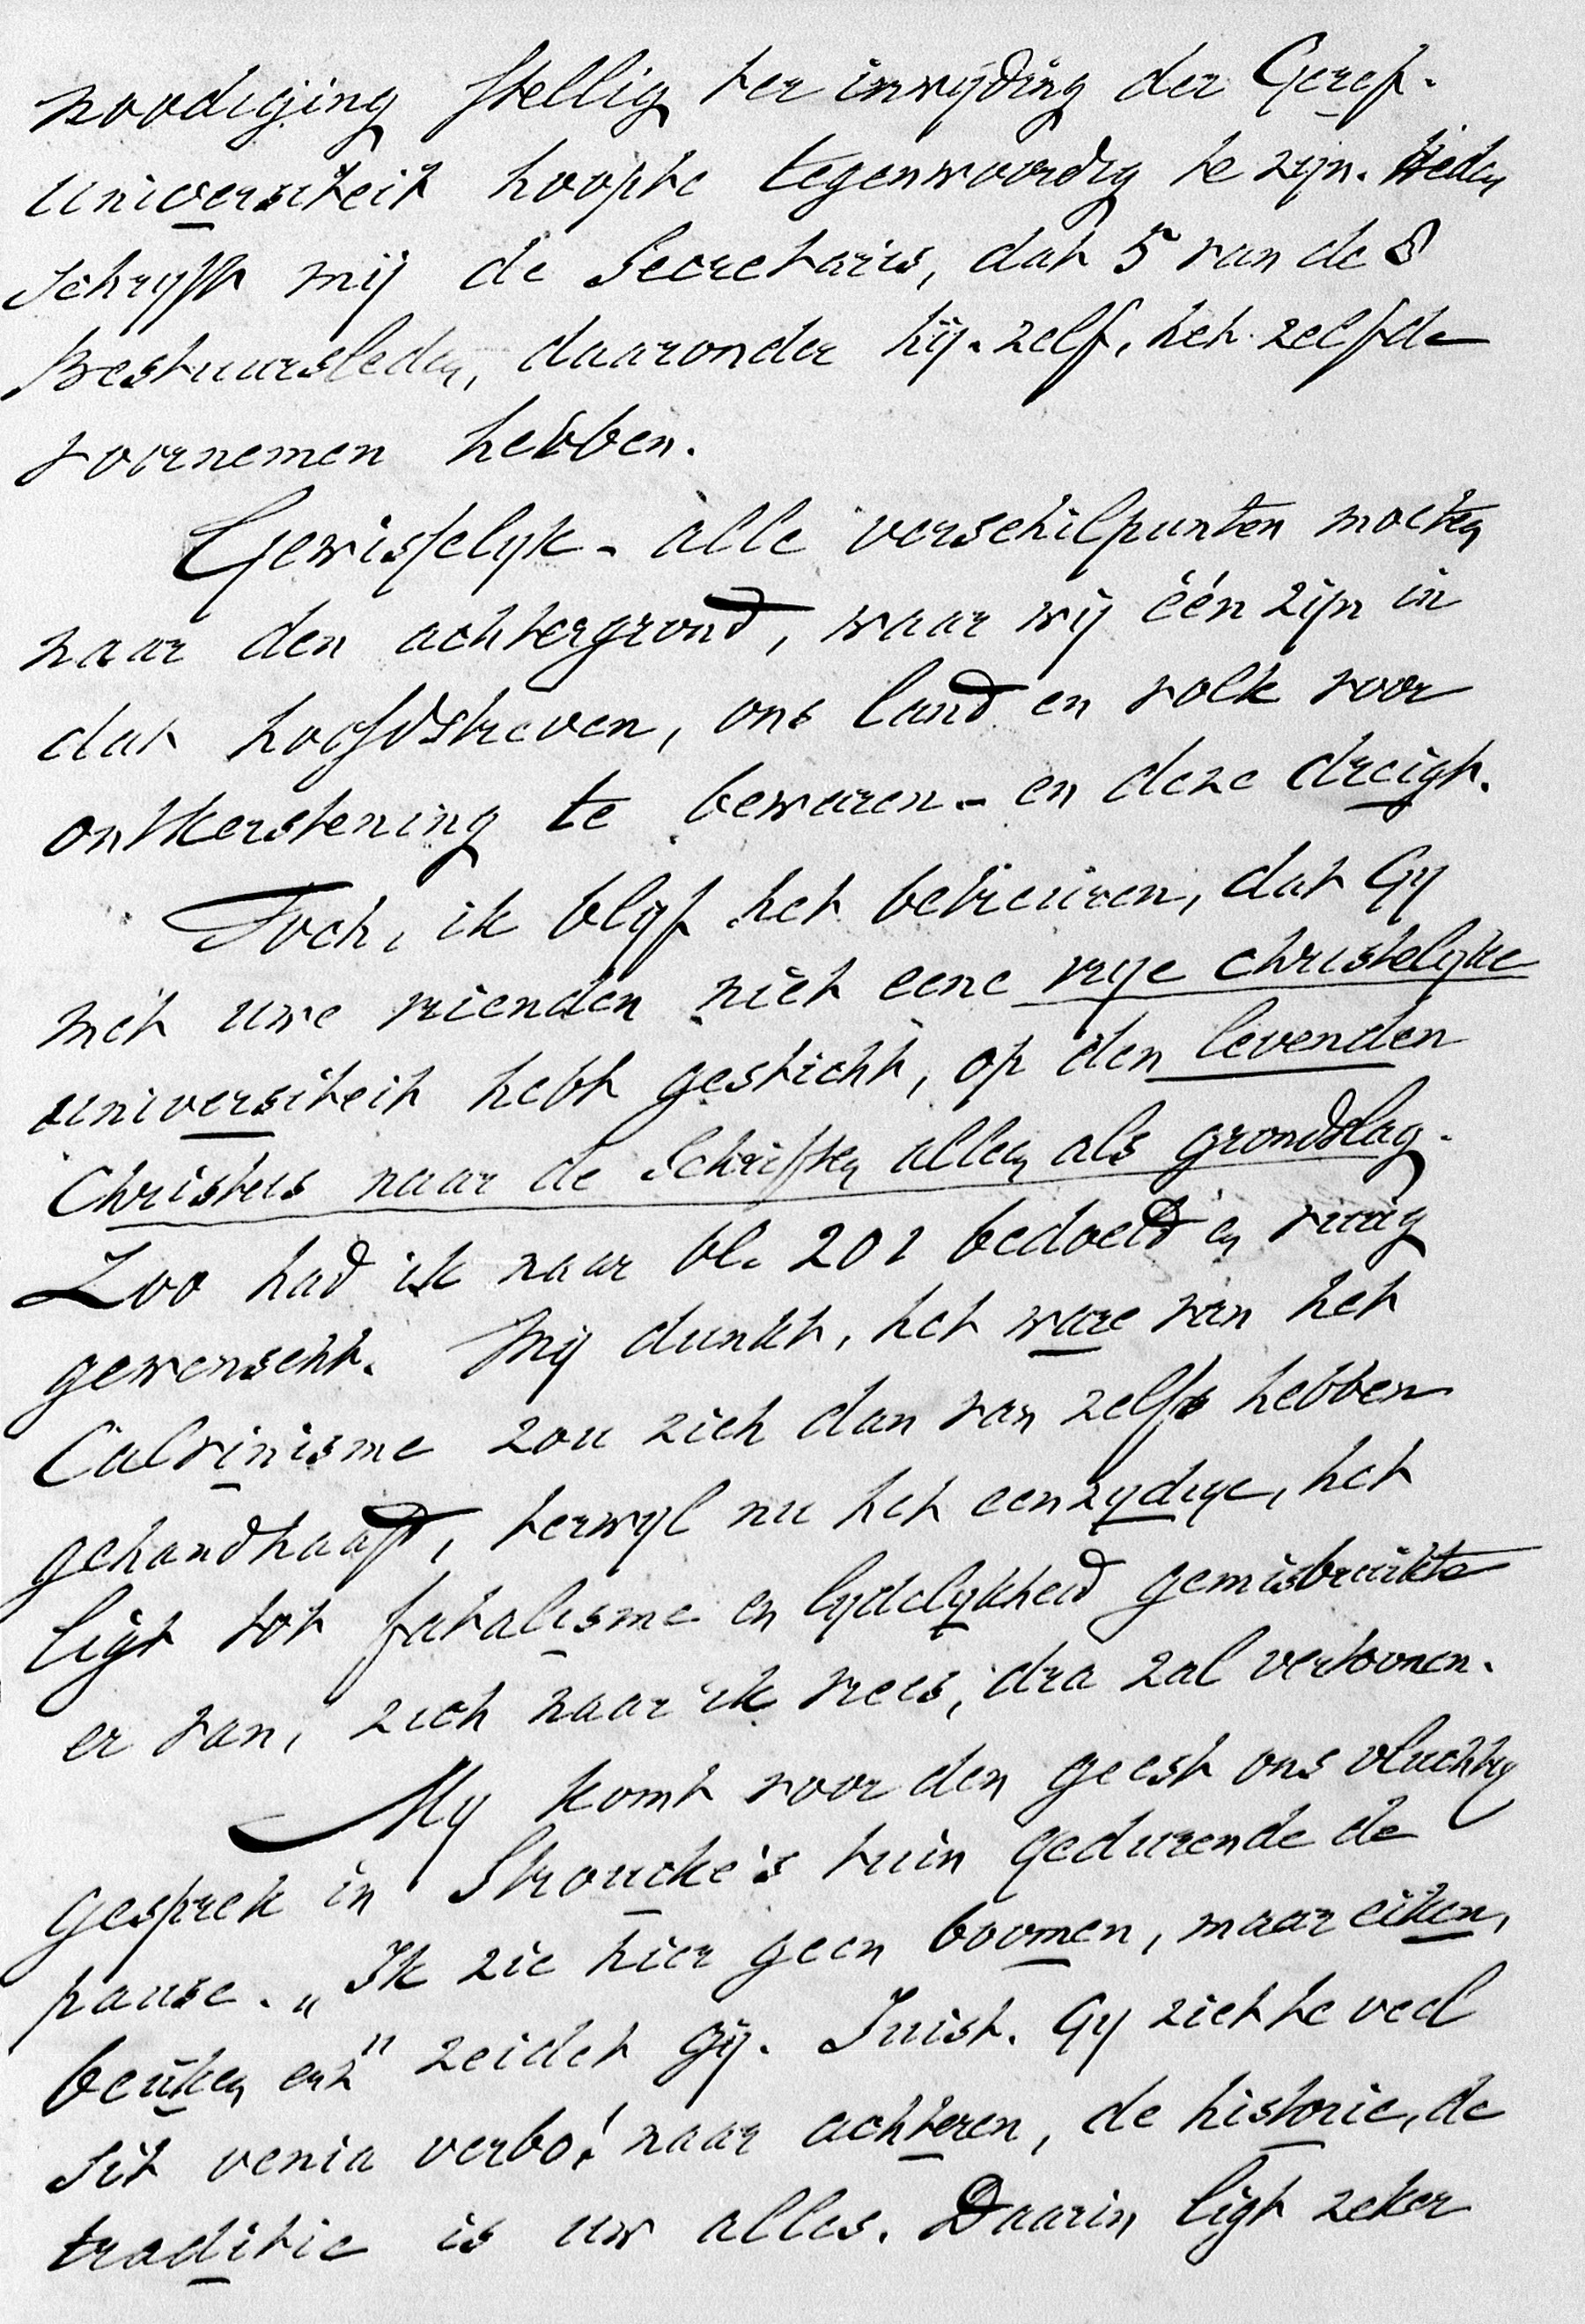 noodiging stellig ter inwijding der Geref.
Universiteit hoopte tegenwoordig te zijn. Heden
schrijft mij de Secretaris, dat 5 van de 8
Bestuursleden, daaronder hij-zelf, het zelfde
voornemen hebben.
Gewisselijk - alle verschilpunten moeten
naar den achtergrond, waar wij één zijn in
dat hoofdstreven, ons land en volk voor
ontkerstening te bewaren - en deze dreigt.
Toch, ik blijf het betreuren, dat Gij
met uwe vrienden niet eene vrije christelijke
universiteit hebt gesticht, op den levenden
Christus naar de Schriften alleen als grondslag.
Zoo had ik naar bl. 201 bedoeld en vurig
gewenscht. Mij dunkt, het ware van het
Calvinisme zou zich dan van zelfs hebben
gehandhaafd, terwijl nu het eenzijdige, het
ligt tot fatalisme en lijdelijkheid gemisbruikte
er van, zich naar ik vrees, dra zal vertoonen.
Mij komt voor den geest ons vluchtig
gesprek in Stroucke's tuin gedurende de
pause. „Ik zie hier geen boomen, maar eiken,
beuken enz" zeidet gij. Juist. Gij ziet te veel
sit venia verbo! naar achteren, de historie, de
traditie is uw alles. Daarin ligt zeker